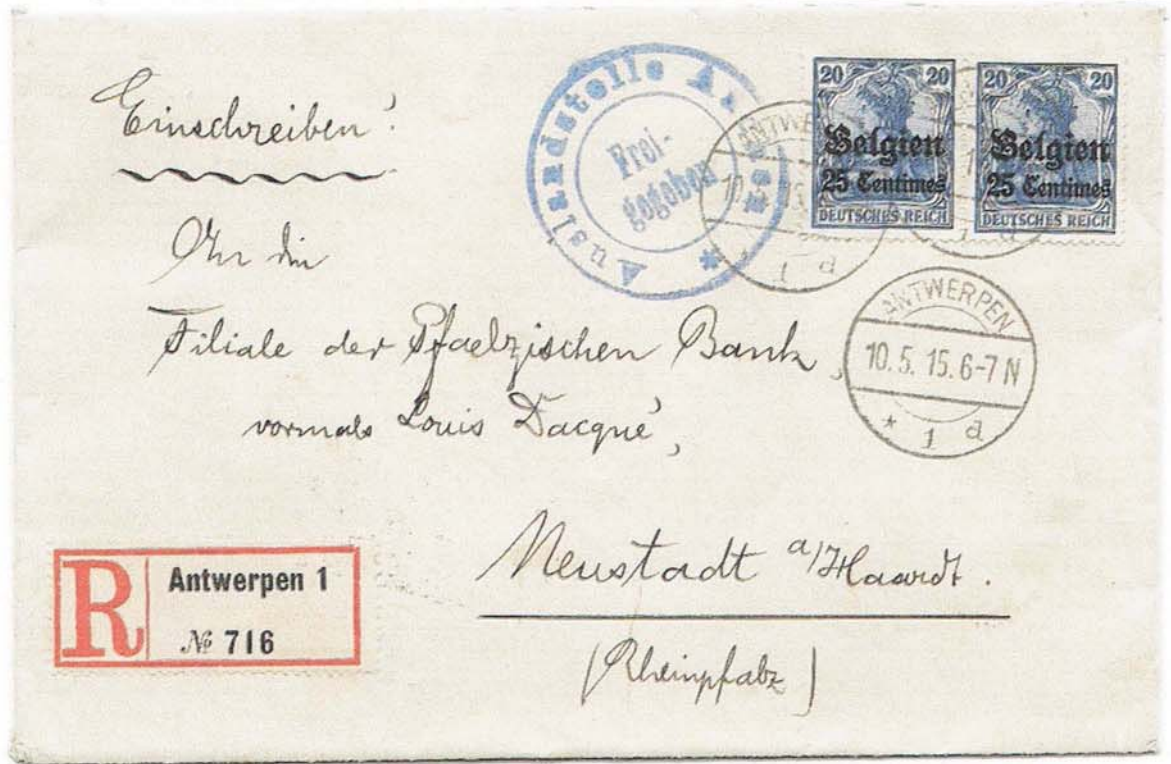 Einschreiben!
Auslandstelle
Frei-
gegeben
20 20
Belgien
25 Centimes
DEUTSCHES REICH
20 20
Belgien
25 Centimes
DEUTSCHES REICH
1 d
An die
Filiale der Pfaelzischen Bank,
vormals Louis Dacqué,
ANTWERPEN
10.5.15.6-7 N
* 1 d
Neustadt a/Haardt.
(Rheinpfalz)
R
Antwerpen 1
№ 716